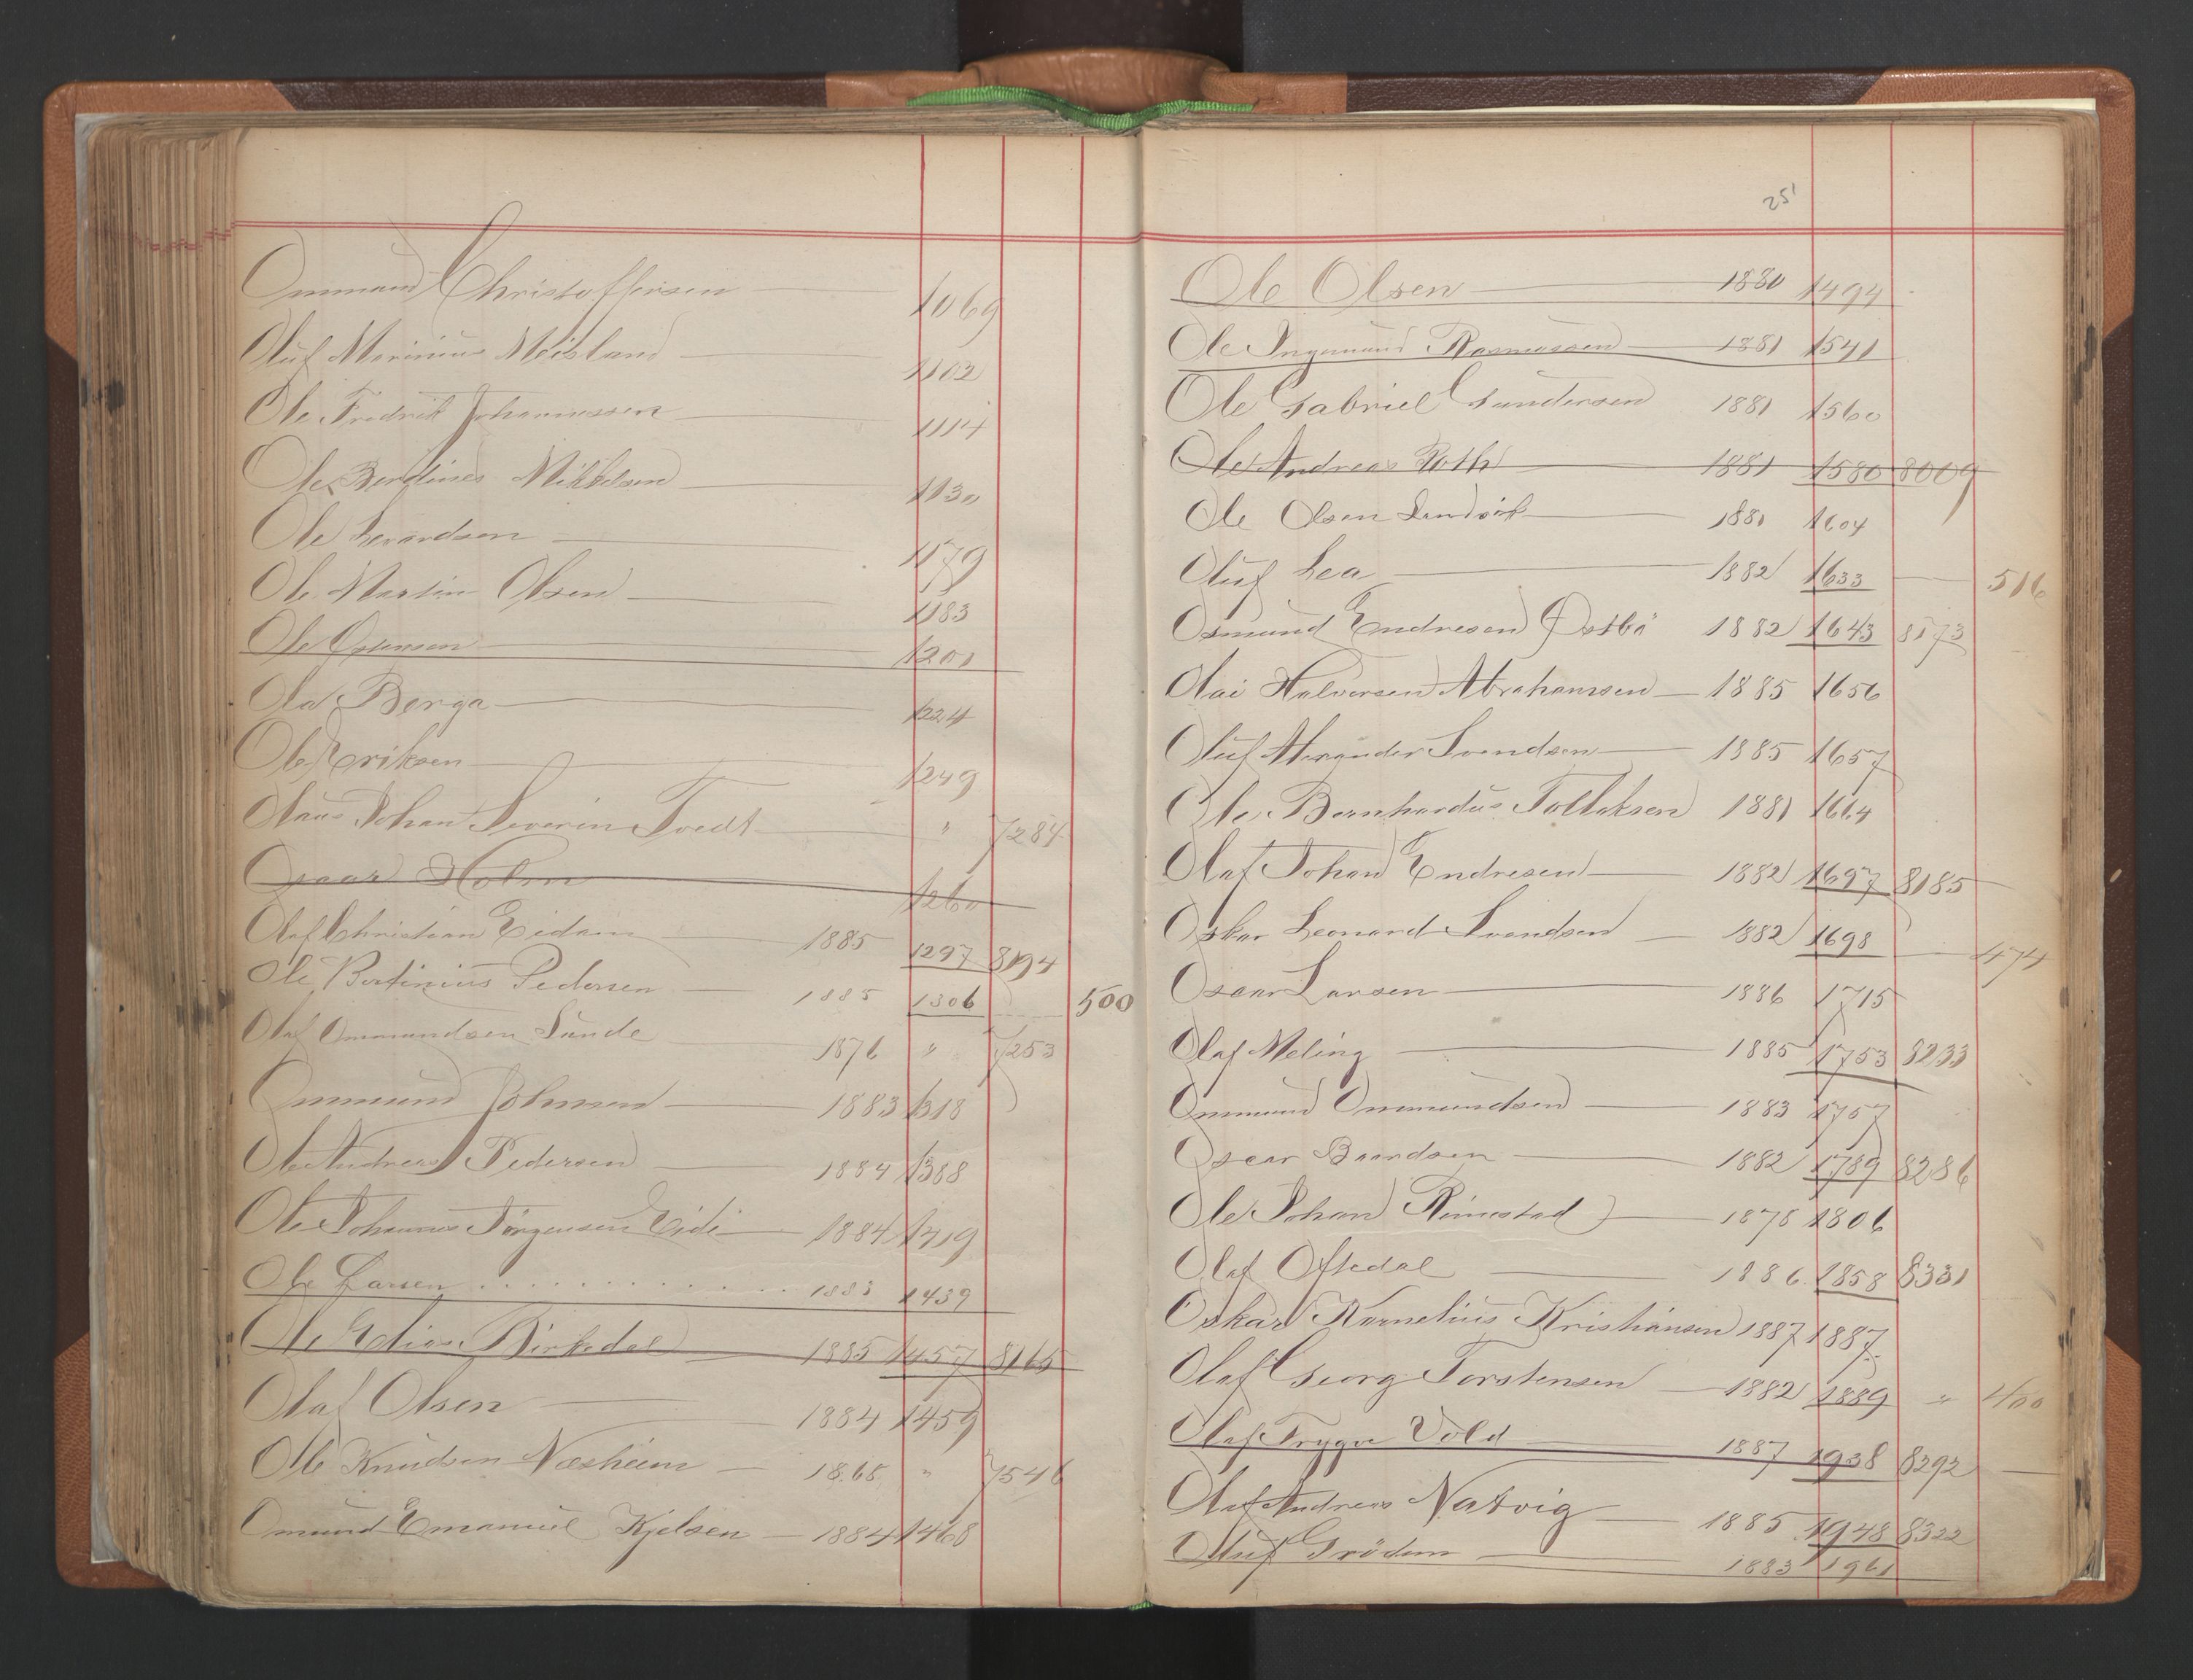 Ommund Christoffersen 1069
Oluf Marinius Meisland 1102
Ole Fredrik Johannessen 1114
Ole Berdines Mikkelsen 1130
Ole Levardsen 1179
Ole Martin Olsen 1183
Ole Ostensen 1201
Ola Berga 1224
Ole Eriksen 1249
Olaus Johan Severin Tvedt " 7284
Oscar Holm 1260
Olaf Christian Eidsen 1885 1297 8194
Ole Bertinius Pedersen 1885 1306 500
Olaf Ommundsen Lunde 1876 " 7253
Ommund Johnsen 1883 1318
Ole Andreas Pedersen 1884 1388
Ole Johannes Jörgensen Eide 1884 1419
Ole Larsen 1883 1439
Ole Elias Birkedal 1885 1457 8165
Olaf Olsen 1884 1459
Ole Knudsen Næsheim 1868 " 7546
Omund Emanuel Kjelsen 1884 1468
251
Ole Olsen 1880 1494
Ole Ingemund Rasmussen 1881 1541
Ole Gabriel Gundersen 1881 1560
Ole Andreas Roth 1881 1580 8009
Ole Olsen Sandvik 1881 1604
Oluf Lea 1882 1633 516
Osmund Endresen Östbö 1882 1643 8173
Olai Halvorsen Abrahamsen 1885 1656
Oluf Alexander Svendsen 1885 1657
Ole Bernhardus Tollaksen 1881 1664
Olaf Johan Endresen 1882 1697 8185
Oskar Leonard Svendsen 1882 1698 474
Oscar Larsen 1886 1715
Olaf Meling 1885 1753 8233
Ommund Ommundsen 1883 1757
Oscar Baardsen 1882 1789 8286
Ole Johan Rimestad 1878 1806
Olaf Oftedal 1886 1858 8331
Oskar Kornelius Kristiansen 1887 1887
Olaf Georg Torstensen 1882 1889 " 400
Olaf Trygve Vold 1887 1938 8292
Olaf Andreas Natvig 1885 1948 8322
Oluf Grödem 1883 1961